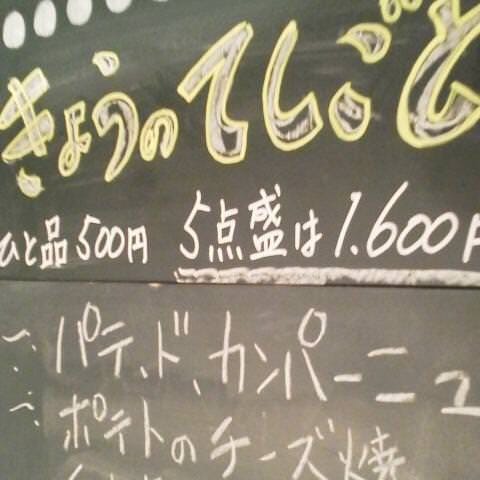 きょうのてしごと
ひと品500円 5点盛は1.600円
一、パテ、ド、カンパーニュ
二、ポテトのチーズ焼